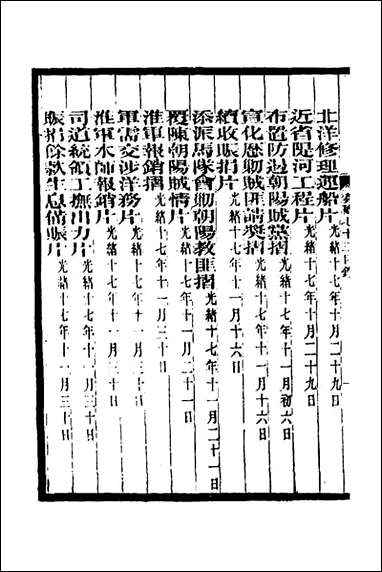 北洋修理運船片光緒十七年十月二十九日
近省堤河工程片光緒十七年十月二十九日
布置防遏朝陽賊黨摺光緒十七年十一月初六日
宣化歷勦賊匪請獎摺光緒十七年十一月十六日
續收賑捐片光緒十七年十一月十六日
添派馬隊會勦朝陽教匪摺光緒十七年十一月二十一日
覆陳朝陽賊情片光緒十七年十一月二十一日
淮軍報銷摺光緒十七年十一月三十日
軍需交涉洋務片光緒十七年十一月三十日
淮軍水師報銷片光緒十七年十一月三十日
司道統領工撫出力片光緒十七年十一月三十日
賑捐餘款生息備賑片光緒十七年十一月三十日